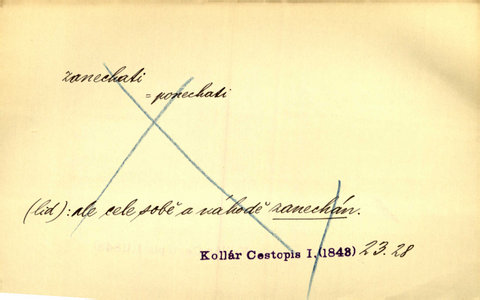 zanechati
= ponechati
(lid): ale cele sobě a náhodě zanechán.
Kollár Cestopis I. (1843) 23.28